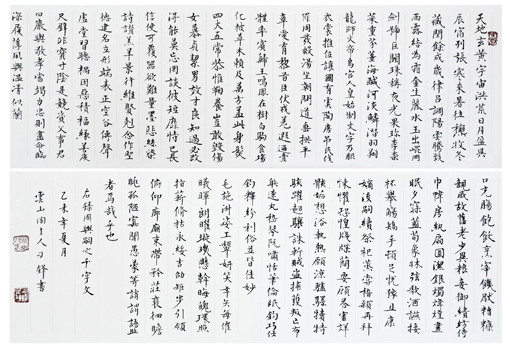 天地玄黃宇宙洪荒日月盈昃
辰宿列張寒來暑往秋收冬
藏閏餘成歲律呂調陽雲騰致
雨露結為霜金生麗水玉出崑岡
劍號巨闕珠稱夜光果珍李柰
菜重芥薑海鹹河淡鱗潛羽翔
龍師火帝鳥官人皇始制文字乃服
衣裳推位讓國有虞陶唐弔民伐
罪周發殷湯坐朝問道垂拱平
章愛育黎首臣伏戎羌遐邇壹
體率賓歸王鳴鳳在樹白駒食場
化被草木賴及萬方蓋此身髮
四大五常恭惟鞠養豈敢毀傷
女慕貞絜男效才良知過必改
得能莫忘罔談彼短靡恃己長
信使可覆器欲難量墨悲絲染
詩讚羔羊景行維賢剋念作聖
德建名立形端表正空谷傳聲
虛堂習聽禍因惡積福緣善慶
尺璧非寶寸陰是競資父事君
曰嚴與敬孝當竭力忠則盡命臨
深履薄夙興溫凊似蘭
口充腸飽飫烹宰飢厭糟糠
親戚故舊老少異糧妾御績紡侍
巾帷房紈扇圓潔銀燭煒煌晝
眠夕寐藍筍象床弦歌酒讌接
杯舉觴矯手頓足悅豫且康
嫡後嗣續祭祀蒸嘗稽顙再拜
悚懼恐惶牋牒簡要顧答審詳
骸垢想浴執熱願涼驢騾犢特
駭躍超驤誅斬賊盜捕獲叛亡布
射遼丸嵇琴阮嘯恬筆倫紙鈞巧任
釣釋紛利俗並皆佳妙
毛施淑姿工顰妍笑年矢每催
曦暉朗曜璇璣懸斡晦魄環照
指薪修祜永綏吉劭矩步引領
俯仰廊廟束帶矜莊徘徊瞻
眺孤陋寡聞愚蒙等誚謂語助
者焉哉乎也
右錄周興嗣之千字文
乙未年夏月
雲山閒人刁鋒書